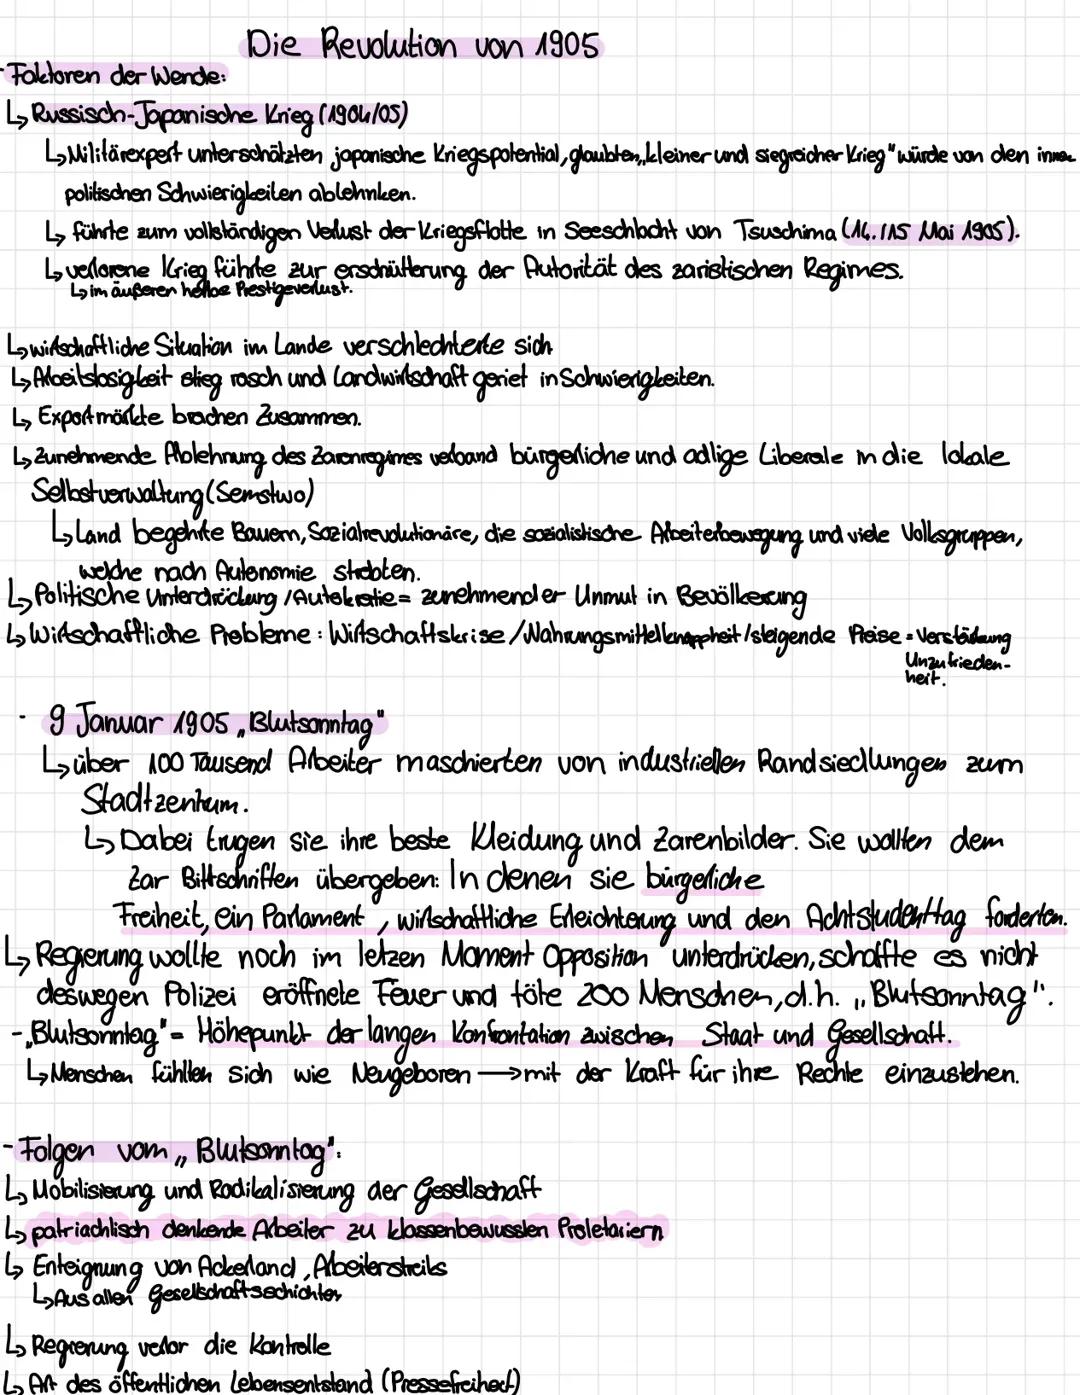 Die Revolution von 1905
- Faktoren der Wende:
↳ Russisch-Japanische Krieg (1904/05)
↳ Militärexpert unterschätzten japanische Kriegspotential, glaubten „kleiner und siegreicher Krieg" würde von den innen
politischen Schwierigkeiten ablehnken.
↳ führte zum vollständigen Verlust der Kriegsflotte in Seeschlacht von Tsuschima (14./15 Mai 1905).
↳ verlorene Krieg führte zur erschütterung der Autorität des zaristischen Regimes.
↳ im äußeren Prestigeverlust.
↳ wirtschaftliche Situation im Lande verschlechterte sich
↳ Arbeitslosigkeit stieg rasch und Landwirtschaft geriet in Schwierigkeiten.
↳ Exportmärkte brachen Zusammen.
↳ Zunehmende Ablehnung des Zarenregimes verband bürgerliche und adlige Liberale in die lokale
Selbstverwaltung (Semstwo)
↳ Land begehrte Bauern, Sozialrevolutionäre, die sozialistische Arbeiterbewegung und viele Volksgruppen,
welche nach Autonomie strebten.
↳ Politische Unterdrückung / Autokratie = zunehmender Unmut in Bevölkerung
↳ Wirtschaftliche Probleme: Wirtschaftskrise / Nahrungsmittelknappheit / steigende Preise = Verstärkung
Unzufrieden-
heit.
- 9 Januar 1905 „Blutsonntag"
↳ über 100 Tausend Arbeiter maschierten von industriellen Randsiedlungen zum
Stadtzentum.
↳ Dabei trugen sie ihre beste Kleidung und Zarenbilder. Sie wollten dem
Zar Bittschriften übergeben: In denen sie bürgerliche
Freiheit, ein Parlament, wirtschaftliche Erleichterung und den Achtstudenttag forderten.
↳ Regierung wollte noch im letzen Moment Opposition unterdrücken, schaffte es nicht
deswegen Polizei eröffnete Feuer und töte 200 Menschen, d.h. „Blutsonntag".
- „Blutsonntag" = Höhepunkt der langen Konfrontation zwischen Staat und Gesellschaft.
↳ Menschen fühlten sich wie Neugeboren → mit der Kraft für ihre Rechte einzustehen.
- Folgen vom „Blutsonntag":
↳ Mobilisierung und Radikalisierung der Gesellschaft
↳ patriachlisch denkende Arbeiter zu klassenbewussten Proletariern
↳ Enteignung von Ackerland, Arbeiterstreiks
↳ Aus allen Gesellschaftsschichten
↳ Regierung verlor die Kontrolle
↳ Art des öffentlichen Lebensentstand (Pressefreiheit)